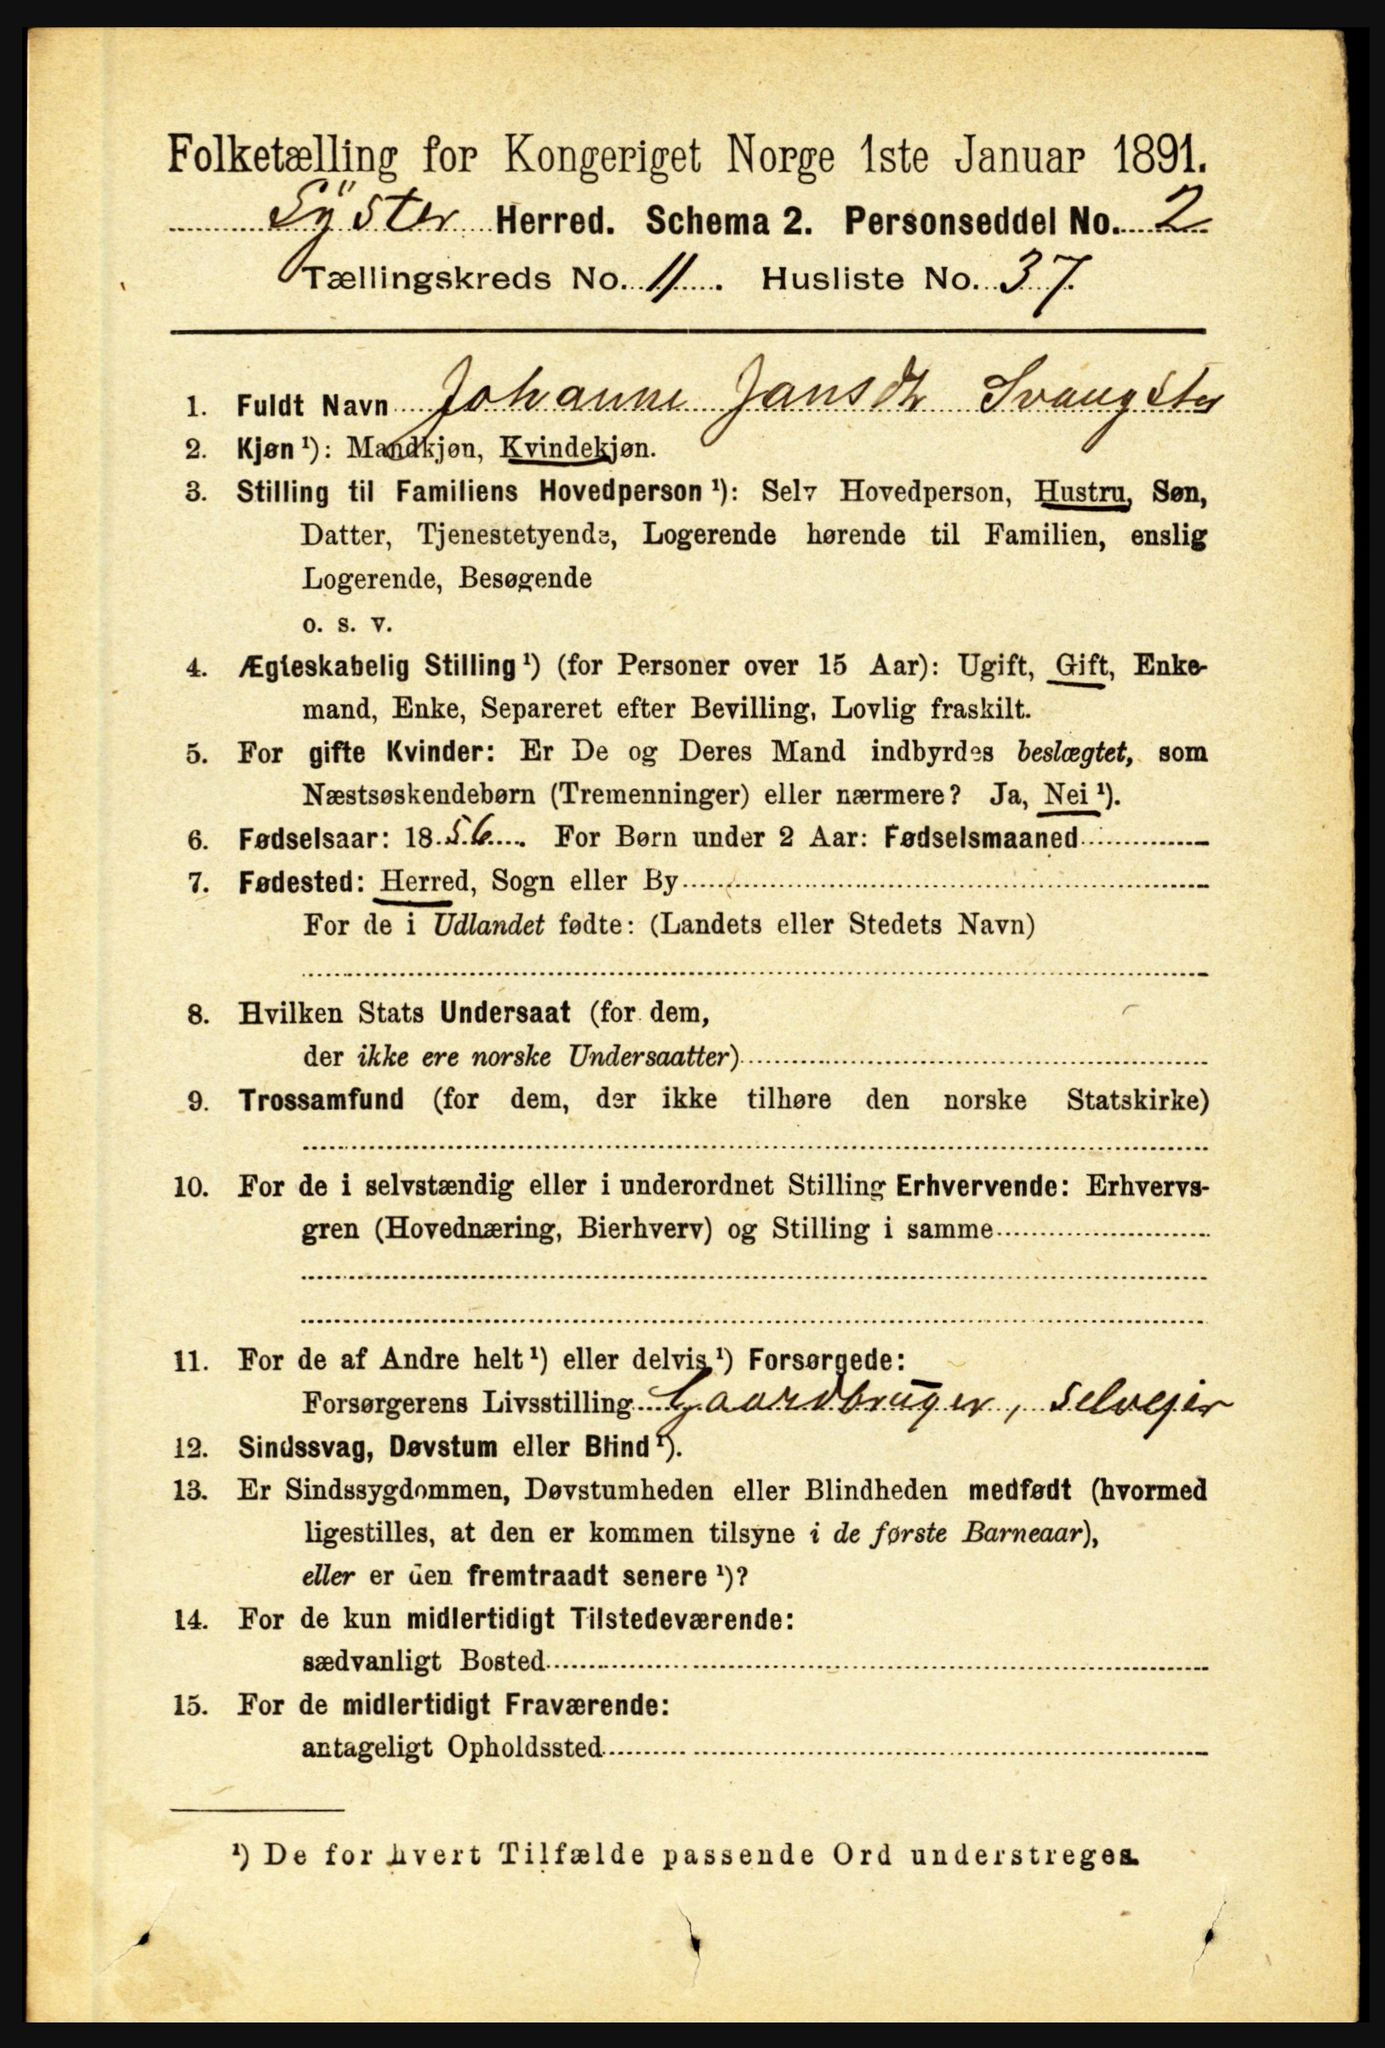 Folketælling for Kongeriget Norge 1ste Januar 1891.
Lÿster Herred. Schema 2. Personseddel No. 2
Tællingskreds No. 11. Husliste No. 37.
1. Fuldt Navn Johanne Jansdtr
2. Kjøn ¹): Mandkjøn, Kvindekjøn.
3. Stilling til Familiens Hovedperson ¹): Selv Hovedperson, Hustru, Søn,
Datter, Tjenestetyende, Logerende hørende til Familien, enslig
Logerende, Besøgende
o. s. v.
4. Ægteskabelig Stilling ¹) (for Personer over 15 Aar): Ugift, Gift, Enke-
mand, Enke, Separeret efter Bevilling, Lovlig fraskilt.
5. For gifte Kvinder: Er De og Deres Mand indbyrdes beslægtet, som
Næstsøskendebørn (Tremenninger) eller nærmere? Ja, Nei ¹).
6. Fødselsaar: 1856. For Børn under 2 Aar: Fødselsmaaned
7. Fødested: Herred, Sogn eller By
For de i Udlandet fødte: (Landets eller Stedets Navn)
8. Hvilken Stats Undersaat (for dem,
der ikke ere norske Undersaatter)
9. Trossamfund (for dem, der ikke tilhøre den norske Statskirke)
10. For de i selvstændig eller i underordnet Stilling Erhvervende: Erhvervs-
gren (Hovednæring, Bierhverv) og Stilling i samme
11. For de af Andre helt ¹) eller delvis ¹) Forsørgede:
Forsørgerens Livsstilling Gaardbruger, selvejer
12. Sindssvag, Døvstum eller Blind ¹).
13. Er Sindssygdommen, Døvstumheden eller Blindheden medfødt (hvormed
ligestilles, at den er kommen tilsyne i de første Barneaar),
eller er den fremtraadt senere ¹)?
14. For de kun midlertidigt Tilstedeværende:
sædvanligt Bosted
15. For de midlertidigt Fraværende:
antageligt Opholdssted
¹) De for hvert Tilfælde passende Ord understreges.